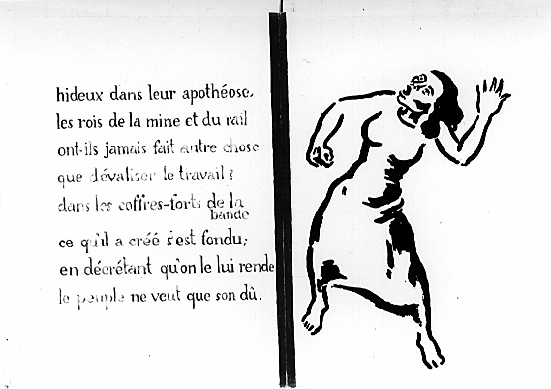 hideux dans leur apothéose,
les rois de la mine et du rail
ont-ils jamais fait autre chose
que dévaliser le travail?
dans les coffres-forts de la
bande
ce qu'il a créé s'est fondu;
en décrétant qu'on le lui rende
le peuple ne veut que son dû.